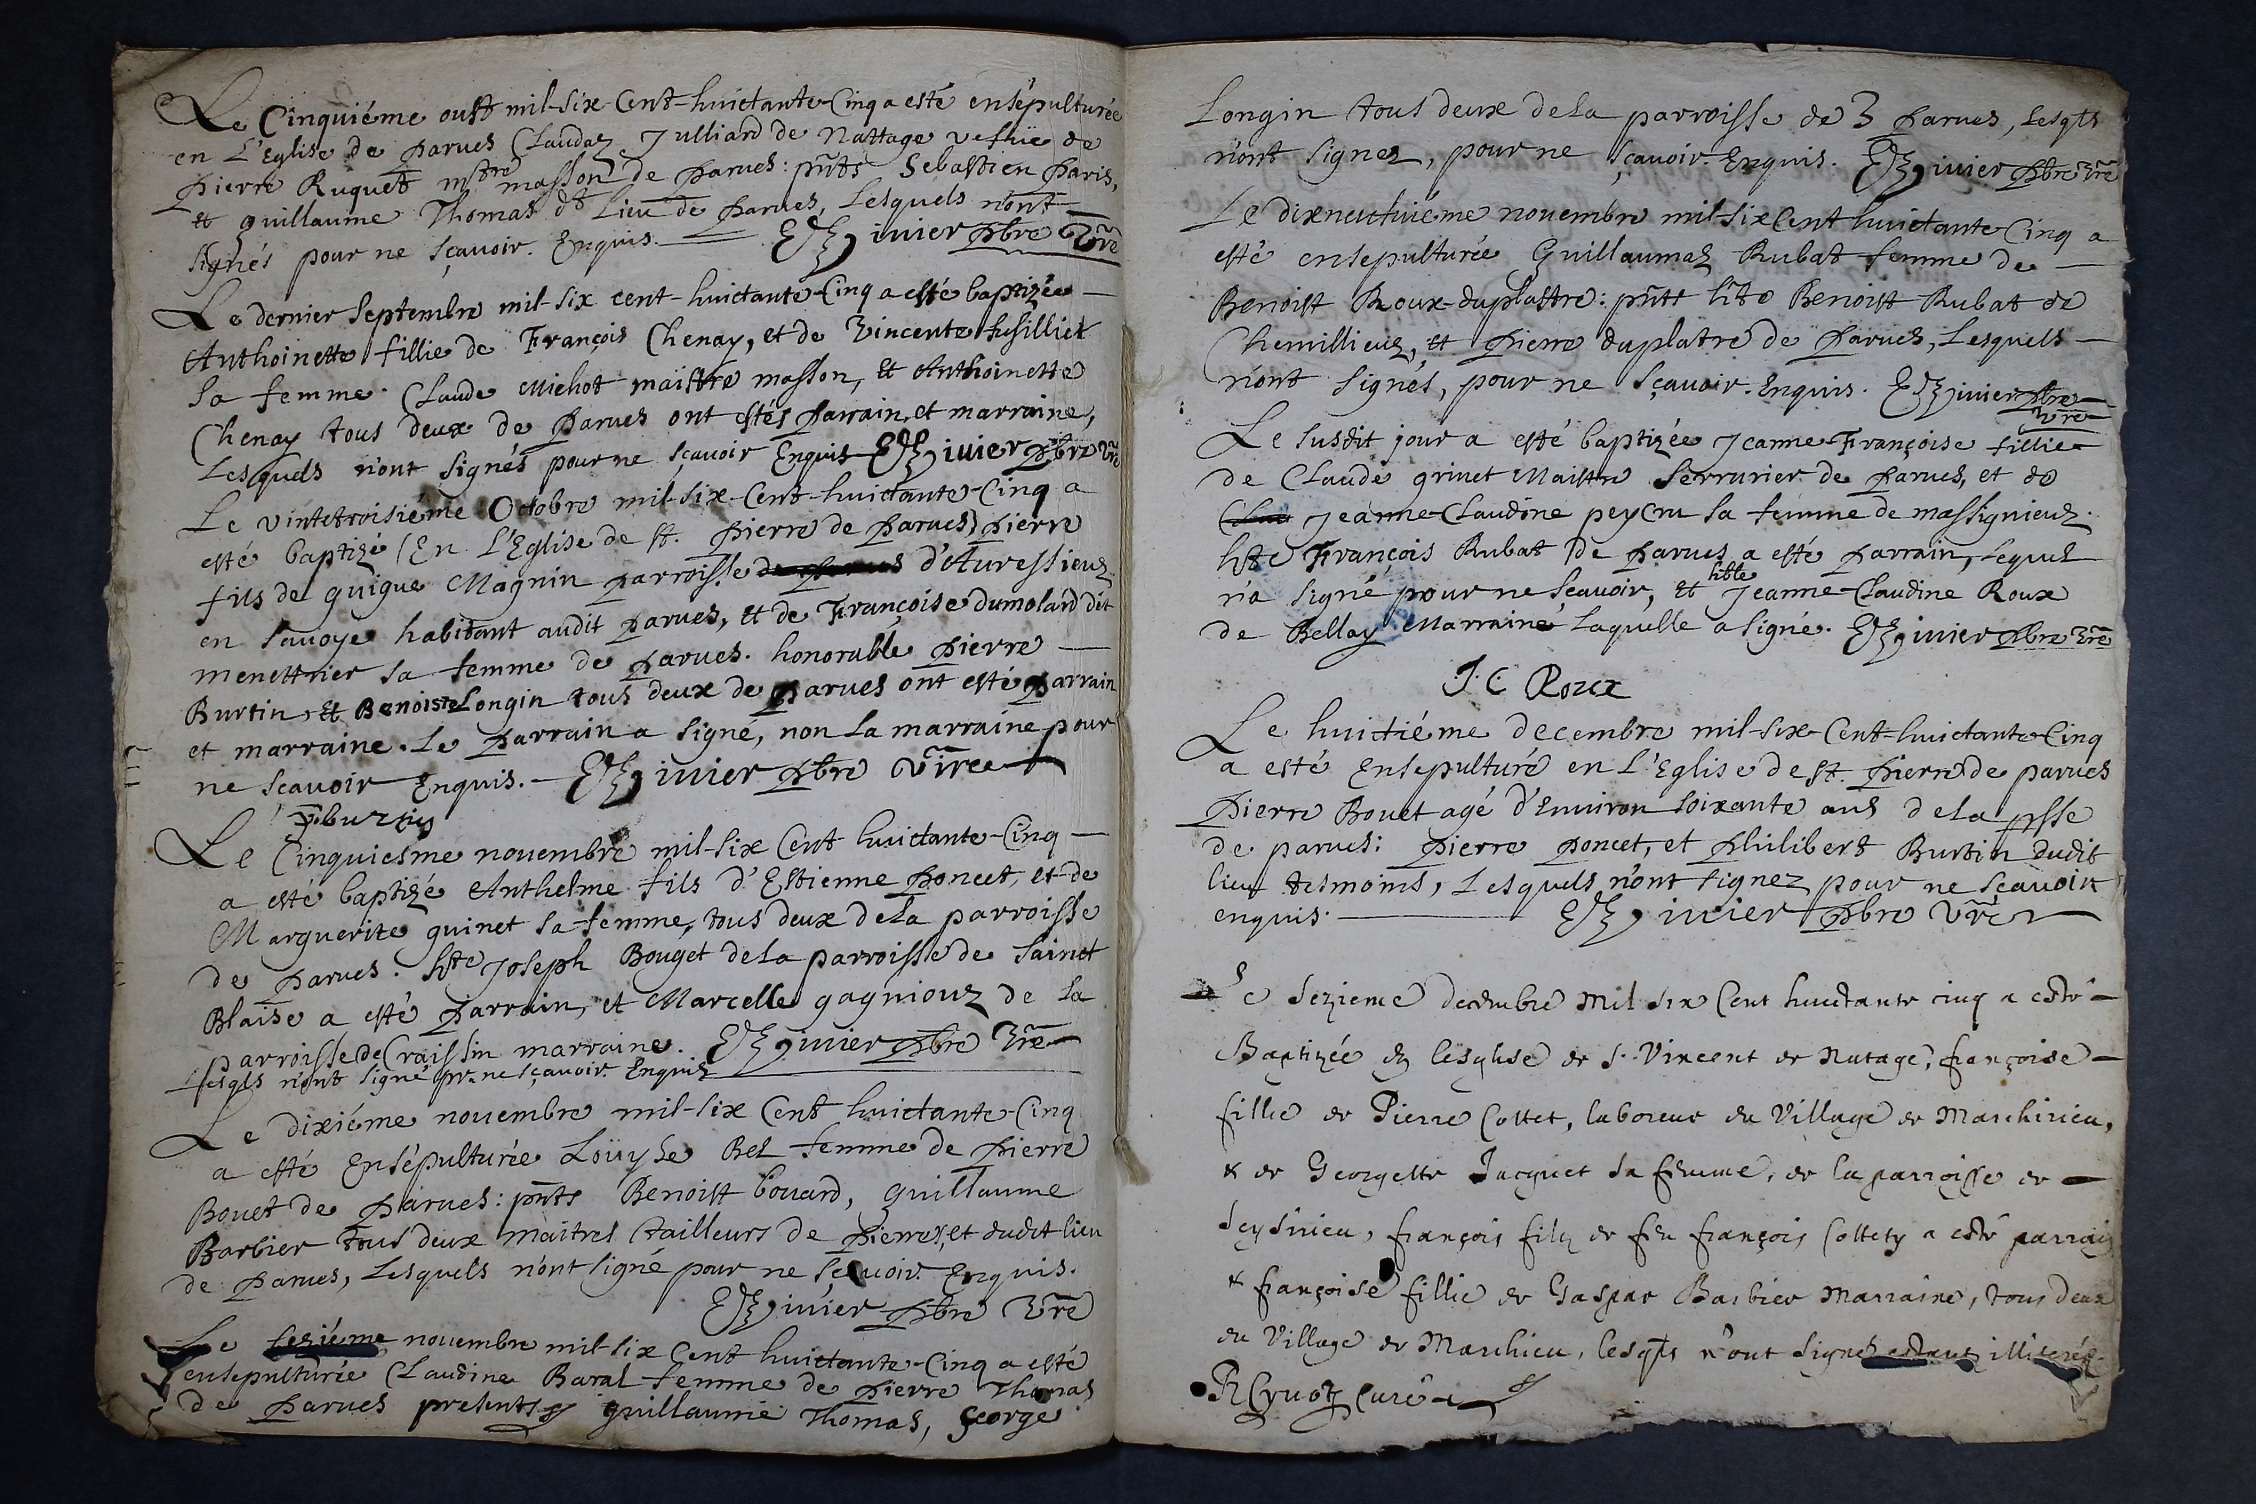 Le Cinquiéme oust mil-six-Cent-huictante-Cinq a esté ensépulturée
en L'Eglise de parues Claudaz Julliard de Nattage vefuë de
pierre Ruquet mtre masson de parues: pnts Sebastien paris,
et guillaume Thomas dt Lieu de parues, Lesquels n'ont
signés pour ne sçauoir. Enquis. iuier pbre Vre
Le dernier septembre mil-six cent-huictante-Cinq a esté baptizée
Anthoinette fillie de François Chenay, et de Vincente fusilliet
sa femme. Claude Michot maistre masson, et Anthoinette
Chenay tous deux de parues ont estés parrain, et marraine,
Lesquels n'ont signés pour ne sçauoir Enquis iuier pbre Vre
Le vintetroisiéme Octobre mil-six-Cent-huictante-Cinq a
esté baptizé (En L'Eglise de st. pierre de parues) pierre
fils de guigue Magnin parroisse de parues d'Auressieuz
en sauoye habitant audit parues, et de Françoise dumolard dit
menettrier sa femme de parues. honorable pierre
Burtin, et Benoiste Longin tous deux de parues ont esté parrain
et marraine. Le parrain a signé, non la marraine pour
ne scauoir Enquis. iuier pbre Vire
p. burtin
Le Cinquiesme nouembre mil-six Cent huictante-Cinq
a esté baptizé Anthelme fils d'Estienne poncet, et de
Marguerite guinet sa femme, tous deux de la parroisse
de parues. hste Joseph Bouget de la parroisse de sainct
Blaise a esté parrain, et Marcelle gagniouz de la
parroisse de Craissin marraine. iuier pbre Vre
Lesqls n'ont signé pr. ne sçauoir Enquis
Le dixiéme nouembre mil-six Cent huictante-Cinq
a esté Ensépulturée Loüyse Bel femme de pierre
Bouet de parues: pnts Benoist bouard, guillaume
Barbier tous deux maitres tailleurs de pierres, et dudit lieu
de parues, Lesquels n'ont signé pour ne sçauoir Enquis.
iuier pbre Vre
Le seziéme nouembre mil-six Cent huictante-Cinq a esté
ensepulturée Claudine Baral femme de pierre Thomas
de parues presents guillaume Thomas, george
Longin tous deux de la parroisse de 3 parues, lesqls
n'ont signez, pour ne sçauoir. Enquis. iuier pbre Vre
Le dixneufuiéme nouembre mil-six Cent huictante Cinq a
esté ensepulturée Guillaumaz Rubat femme de
Benoist Roux-duplastre: pnts hte Benoist Rubat de
Chemillieuz, et pierre duplatre de parues, Lesquels
n'ont signés, pour ne sçauoir. Enquis. iuier pbre
Vre
Le susdit jour a esté baptizée Jeanne-Françoise fillie
de Claude griuet Maistre serrurier de parues, et de
Jeanne-Claudine peycru sa femme de massignieuz.
hste François Rubat de parues a esté parrain, Lequel
n'a signé pour ne sçauoir, et hble Jeanne-Claudine Roux
de Bellay Marraine Laquelle a signé. iuier pbre Vre
J. C. Roux
Le huictiéme decembre mil-six-Cent-huictante-Cinq
a esté Ensepulturé en L'Eglise de st. pierre de parues
pierre Bouet agé d'Enuiron soixante ans de la psse
de parues: pierre poncet, et philibert Burtin dudit
lieu tesmoins, Lesquels n'ont signez pour ne sçauoir
enquis. iuier pbre Vre
Le sezieme decembre mil six Cent huictante cinq a esté
Baptizée en lesglise de s. Vincent de Natage, françoise
fillie de Pierre Cottet, laboreur du Village de Marchirieu,
& de Georgette Jacquet sa femme, de la parroisse de
Seysirieu, françois filz de feu françois Cottety a esté parrain
& françoise fillie de Gaspar Barbier Marraine, tous deux
du Village de Marchieu, lesqls n'ont signes estant illiterés.
Curé